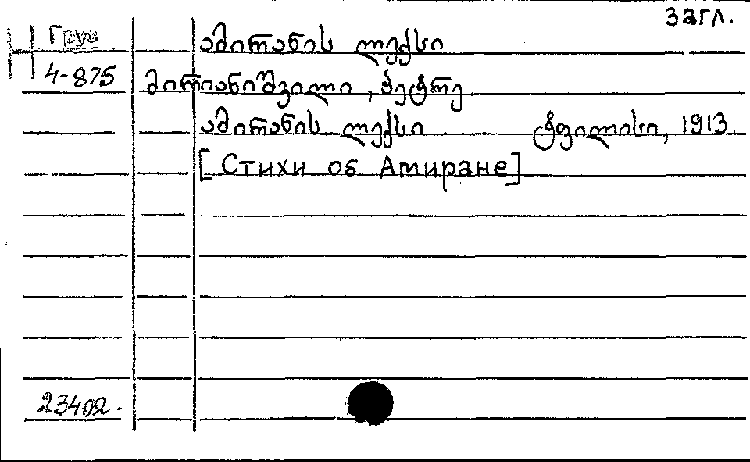 загл.
Груз
ამირანის ლექსი
Н 4-875
მირიანიშვილი, პეტრე
ამირანის ლექსი ტფილისი, 1913
[Стихи об Амиране]
23402.